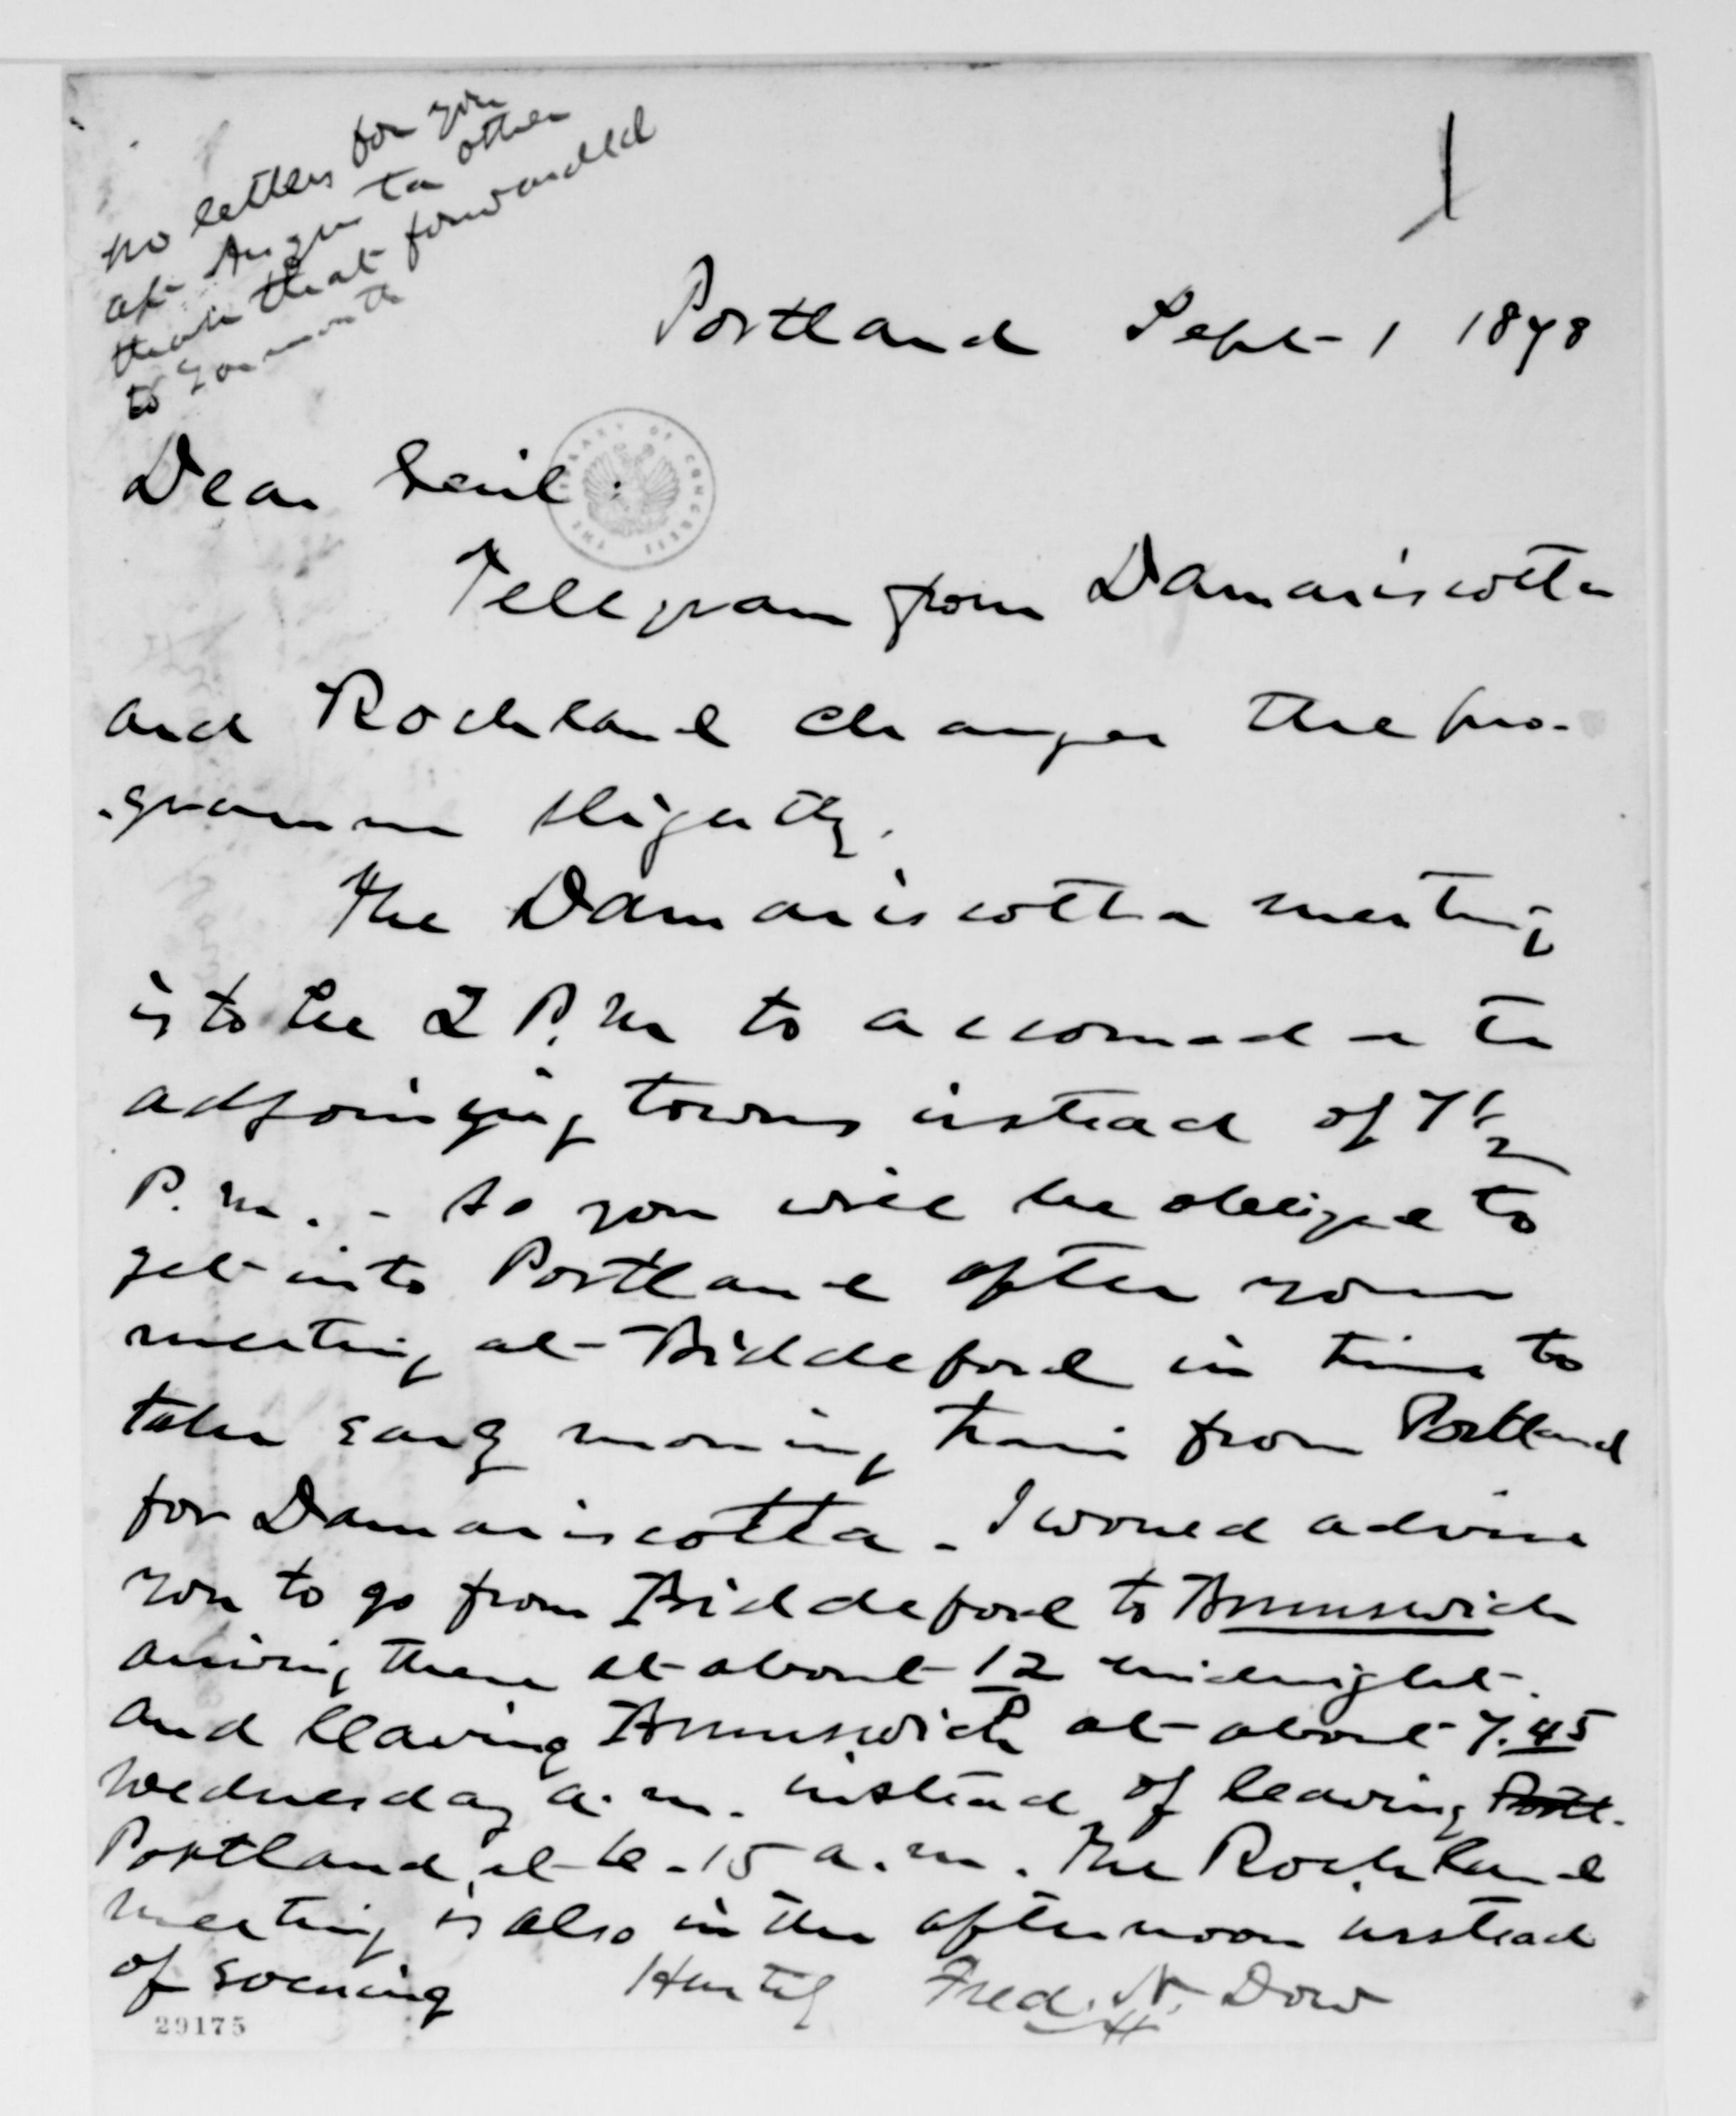 no letters for you
at Augusta other
than that forwarded
to Yarmouth
Portland Sept 1 1878
Dear
Telegram from Damariscotta
and Rockland changes the pro-
-gramme slightly.
The Damariscotta meeting
is to be 2 P.M to accomodate
adjoining towns instead of 7 1/2
P.M. - So you will be obliged to
get into Portland after your
meeting at Biddeford in time to
take early morning train from Portland
for Damariscotta - I would advise
you to go from Biddeford to Brunswick
arriving there at about 12 midnight.
and leaving Brunswick at about 7.45
Wednesday a.m. instead of leaving Port.
Portland at 6.15 a.m. The Rockland
meeting is also in the afternoon instead
of evening Hastily Fred. N. Dow
THE LIBRARY OF CONGRESS
29175